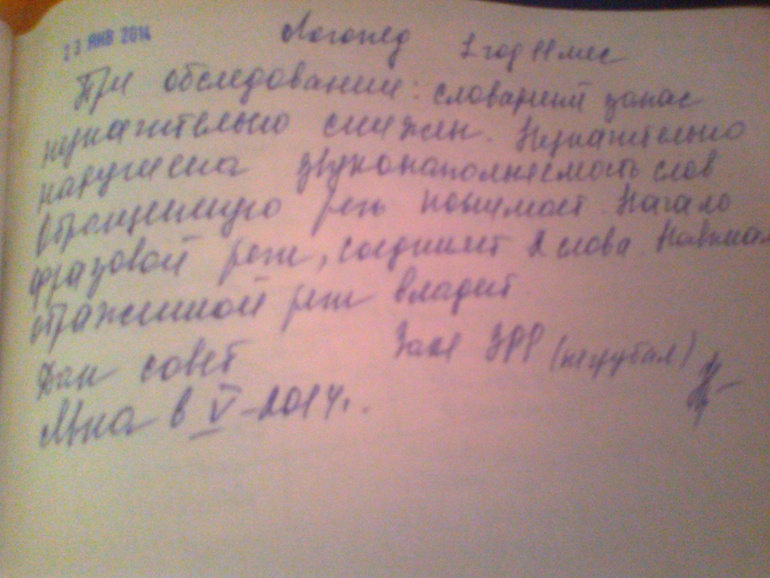 23 ЯНВ 2014
Логопед 1 год 11 мес
При обследовании: словарный запас
незначительно снижен. Незначительно
нарушена звуконаполняемость слов
Обращенную речь понимает. Начало
фразовой речи, соединяет 2 слова. Навыком
отраженной речи владеет.
Дан совет Закл ЗРР (негрубая)
Явка в V-2014г.